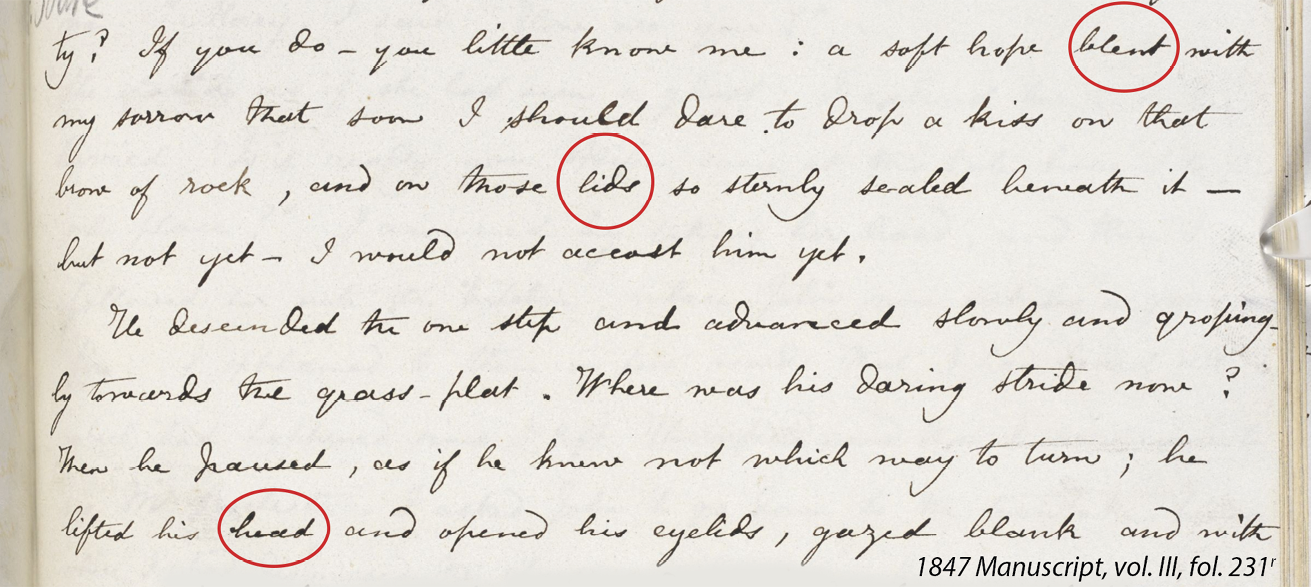 ty? If you do – you little know me : a soft hope blent with
my sorrow that soon I should dare to drop a kiss on that
brow of rock , and on those lids so sternly sealed beneath it —
but not yet – I would not accost him yet.
He descended the one step and advanced slowly and groping-
ly towards the grass-plat . Where was his daring stride now ?
Then he paused , as if he knew not which way to turn ; he
lifted his head and opened his eyelids , gazed blank and with
1847 Manuscript, vol. III, fol. 231r